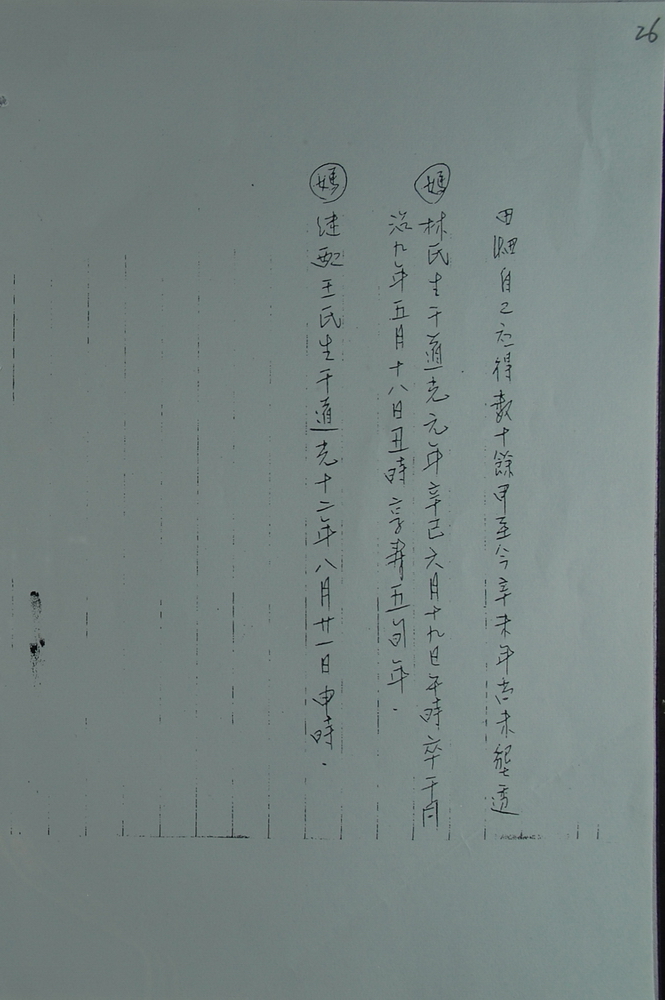 26
田畑自己立得数十餘甲至今辛未年尚未墾透
媽 林氏生于道光元年辛巳六月十九日午時卒于同
治九年五月十八日丑時享壽五旬年.
媽 继配王氏生于道光十二年八月廿一日申時.